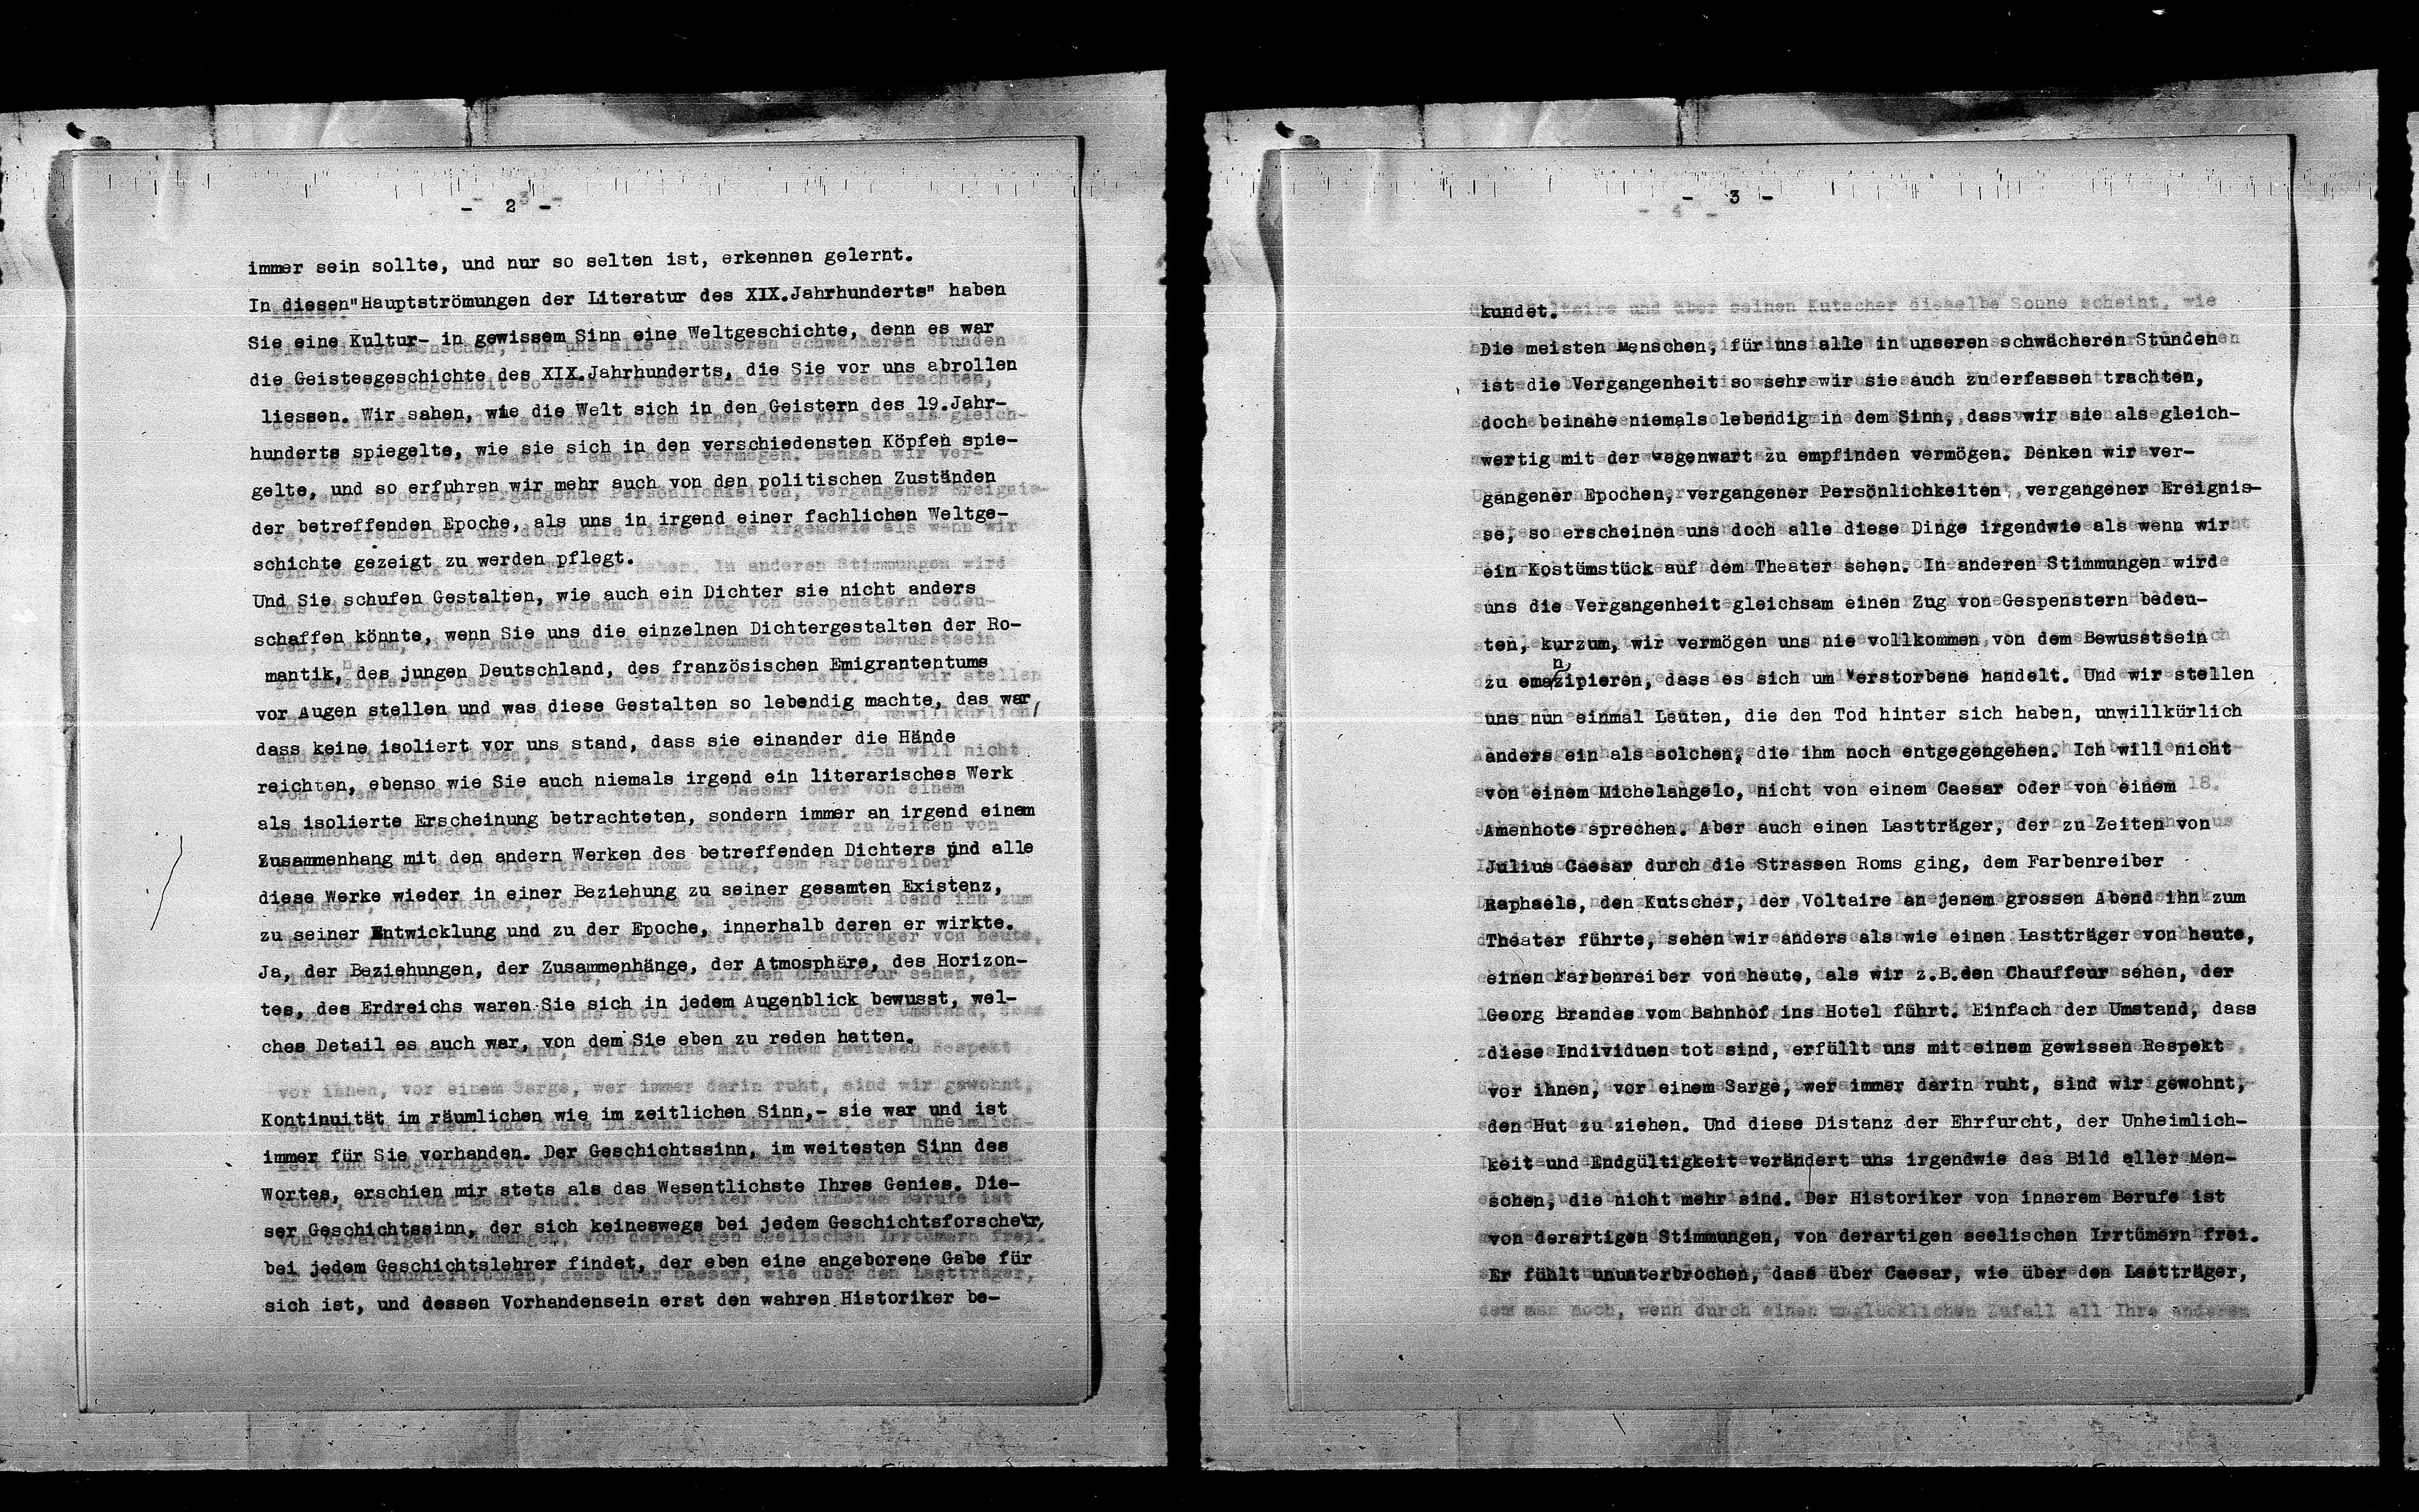 - 2 -
immer sein sollte, und nur so selten ist, erkennen gelernt.
In diesen"Hauptströmungen der Literatur des XIX.Jahrhunderts" haben
Sie eine Kultur- in gewissem Sinn eine Weltgeschichte, denn es war
die Geistesgeschichte des XIX.Jahrhunderts, die Sie vor uns abrollen
liessen. Wir sahen, wie die Welt sich in den Geistern des 19.Jahr-
hunderts spiegelte, wie sie sich in den verschiedensten Köpfen spie-
gelte, und so erfuhren wir mehr auch von den politischen Zuständen
der betreffenden Epoche, als uns in irgend einer fachlichen Weltge-
schichte gezeigt zu werden pflegt.
Und Sie schufen Gestalten, wie auch ein Dichter sie nicht anders
schaffen könnte, wenn Sie uns die einzelnen Dichtergestalten der Ro-
mantik, des jungen Deutschland, des französischen Emigrantentums
vor Augen stellen und was diese Gestalten so lebendig machte, das war,
dass keine isoliert vor uns stand, dass sie einander die Hände
reichten, ebenso wie Sie auch niemals irgend ein literarisches Werk
als isolierte Erscheinung betrachteten, sondern immer an irgend einem
Zusammenhang mit den andern Werken des betreffenden Dichters und alle
diese Werke wieder in einer Beziehung zu seiner gesamten Existenz,
zu seiner Entwicklung und zu der Epoche, innerhalb deren er wirkte.
Ja, der Beziehungen, der Zusammenhänge, der Atmosphäre, des Horizon-
tes, des Erdreichs waren Sie sich in jedem Augenblick bewusst, wel-
ches Detail es auch war, von dem Sie eben zu reden hatten.
Kontinuität im räumlichen wie im zeitlichen Sinn,- sie war und ist
immer für Sie vorhanden. Der Geschichtssinn, im weitesten Sinn des
Wortes, erschien mir stets als das Wesentlichste Ihres Genies. Die-
ser Geschichtssinn, der sich keineswegs bei jedem Geschichtsforscher,
bei jedem Geschichtslehrer findet, der eben eine angeborene Gabe für
sich ist, und dessen Vorhandensein erst den wahren Historiker be-
- 3 -
kundet.
Die meisten Menschen, für uns alle in unseren schwächeren Stunden
ist die Vergangenheit so sehr wir sie auch zu erfassen trachten,
doch beinahe niemals lebendig in dem Sinn, dass wir sie als gleich-
wertig mit der Gegenwart zu empfinden vermögen. Denken wir ver-
gangener Epochen, vergangener Persönlichkeiten, vergangener Ereignis-
se, so erscheinen uns doch alle diese Dinge irgendwie als wenn wir
ein Kostümstück auf dem Theater sehen. In anderen Stimmungen wird
uns die Vergangenheit gleichsam einen Zug von Gespenstern bedeu-
ten, kurzum, wir vermögen uns nie vollkommen von dem Bewusstsein
zu emanzipieren, dass es sich um Verstorbene handelt. Und wir stellen
uns nun einmal Leuten, die den Tod hinter sich haben, unwillkürlich
anders ein als solchen, die ihm noch entgegengehen. Ich will nicht
von einem Michelangelo, nicht von einem Caesar oder von einem
Amenhote sprechen. Aber auch einen Lastträger, der zu Zeiten von
Julius Caesar durch die Strassen Roms ging, dem Farbenreiber
Raphaels, den Kutscher, der Voltaire an jenem grossen Abend ihn zum
Theater führte, sehen wir anders als wie einen Lastträger von heute,
einen Farbenreiber von heute, als wir z.B.den Chauffeur sehen, der
Georg Brandes vom Bahnhof ins Hotel führt. Einfach der Umstand, dass
diese Individuen tot sind, erfüllt uns mit einem gewissen Respekt
vor ihnen, vor einem Sarge, wer immer darin ruht, sind wir gewohnt,
den Hut zu ziehen. Und diese Distanz der Ehrfurcht, der Unheimlich-
keit und Endgültigkeit verändert uns irgendwie das Bild aller Men-
schen, die nicht mehr sind. Der Historiker von innerem Berufe ist
von derartigen Stimmungen, von derartigen seelischen Irrtümern frei.
Er fühlt ununterbrochen, dass über Caesar, wie über den Lastträger,